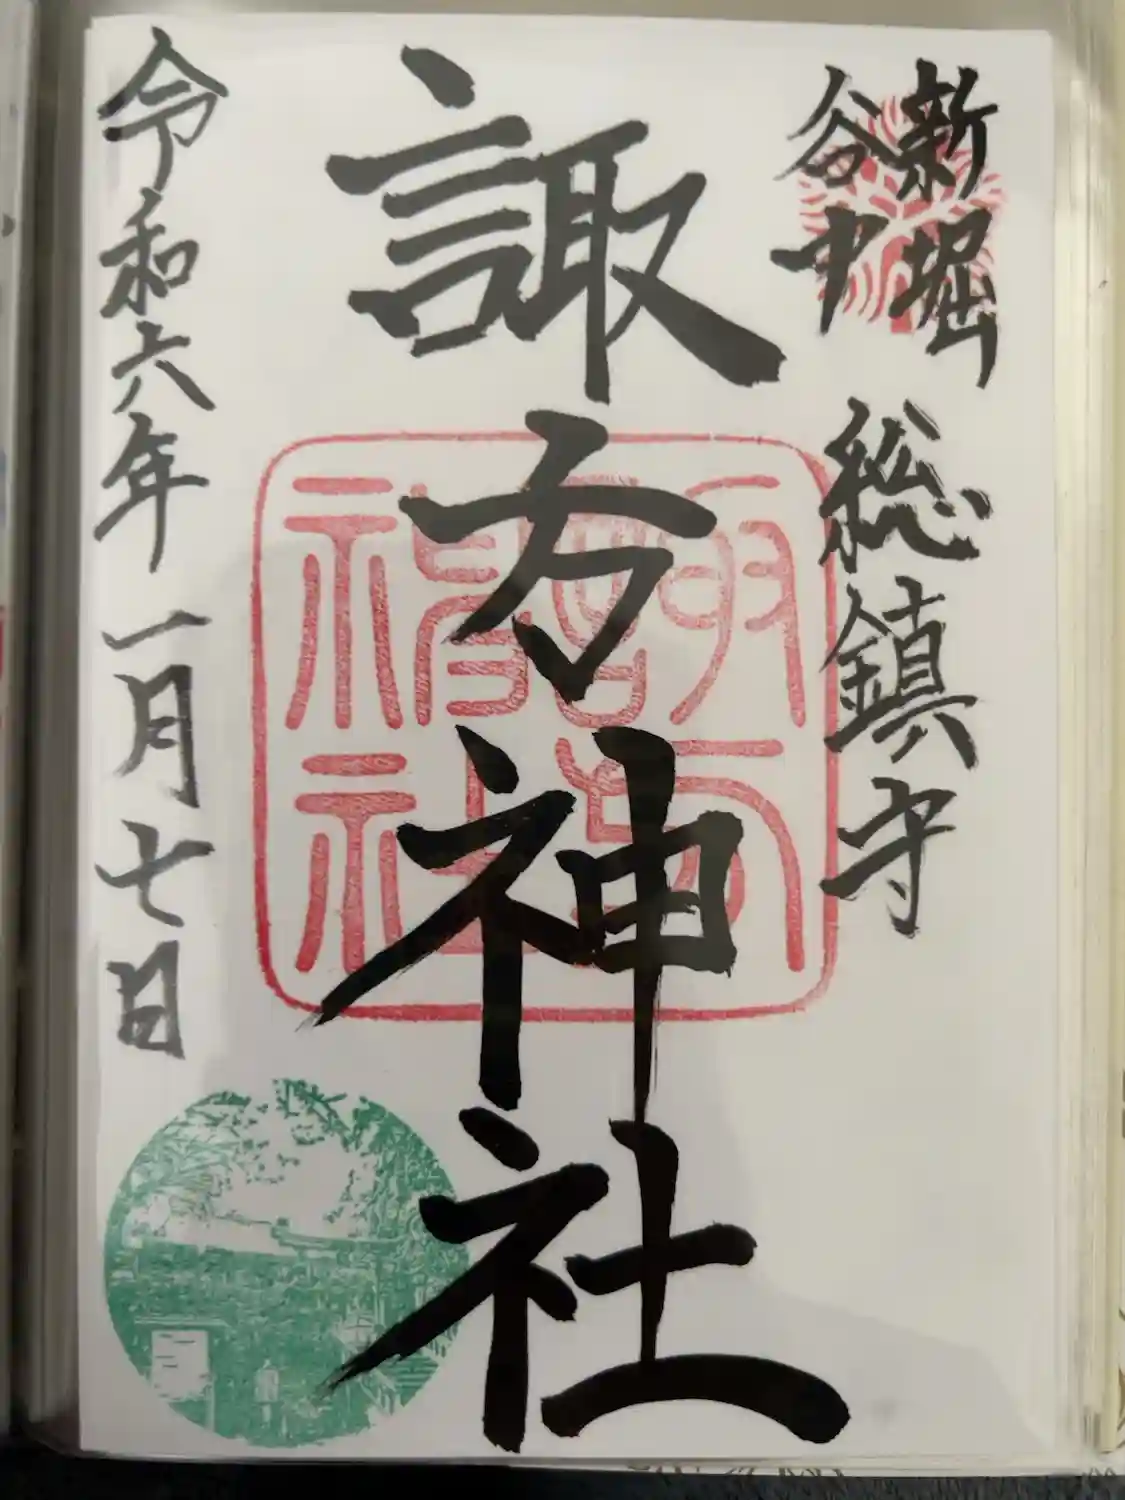 新堀
谷中
総鎮守
諏方神社
令和六年一月七日